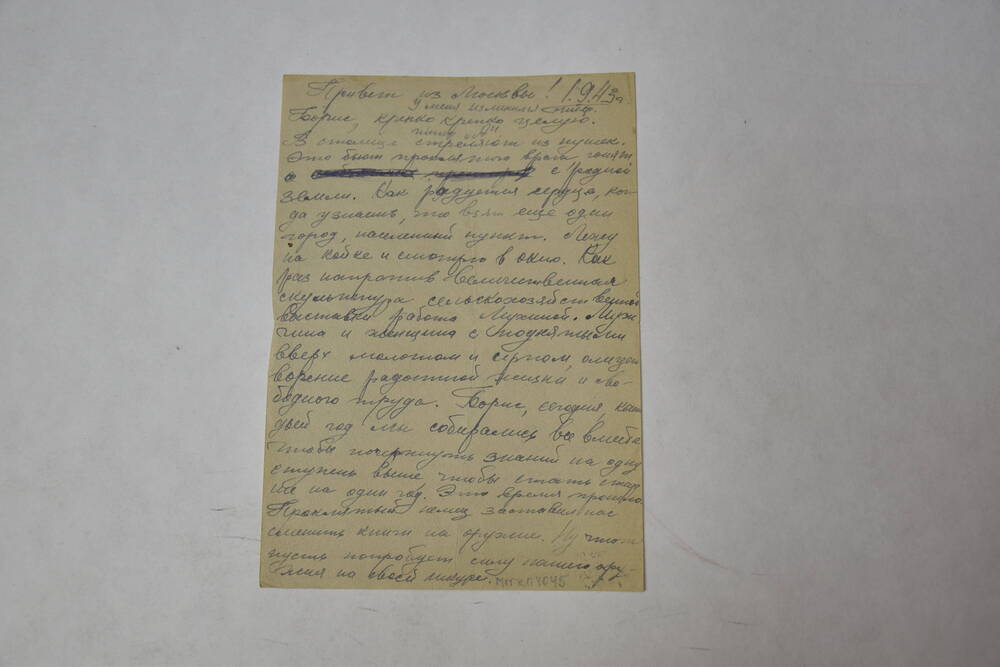 Привет из Москвы! 1.9.43г.
У меня изменился
Борис, крепко крепко целую.
В столице стреляют из пушек.
Это бьют проклятого врага, гонят
с родной
земли. Как радуется сердце, ког-
да узнаешь, что взят еще один
город, населенный пункт. Лежу
на койке и смотрю в окно. Как
раз напротив величественная
скульптура сельскохозяйственной
выставки работа Мухиной. Муж
чина и женщина с поднятыми
вверх молотом и серпом, олицет
ворение радостной жизни и сво-
бодного труда. Борис, сегодня, каж
дый год мы собирались все вместе
чтобы почерпнуть знаний на одну
ступень выше чтобы стать стар
ше на один год. Это время прошло.
Проклятый немец заставил нас
сменить книги на оружие. Ну что ж
пусть попробует силу нашего ору-
жия на своей шкуре. МГКП 4045